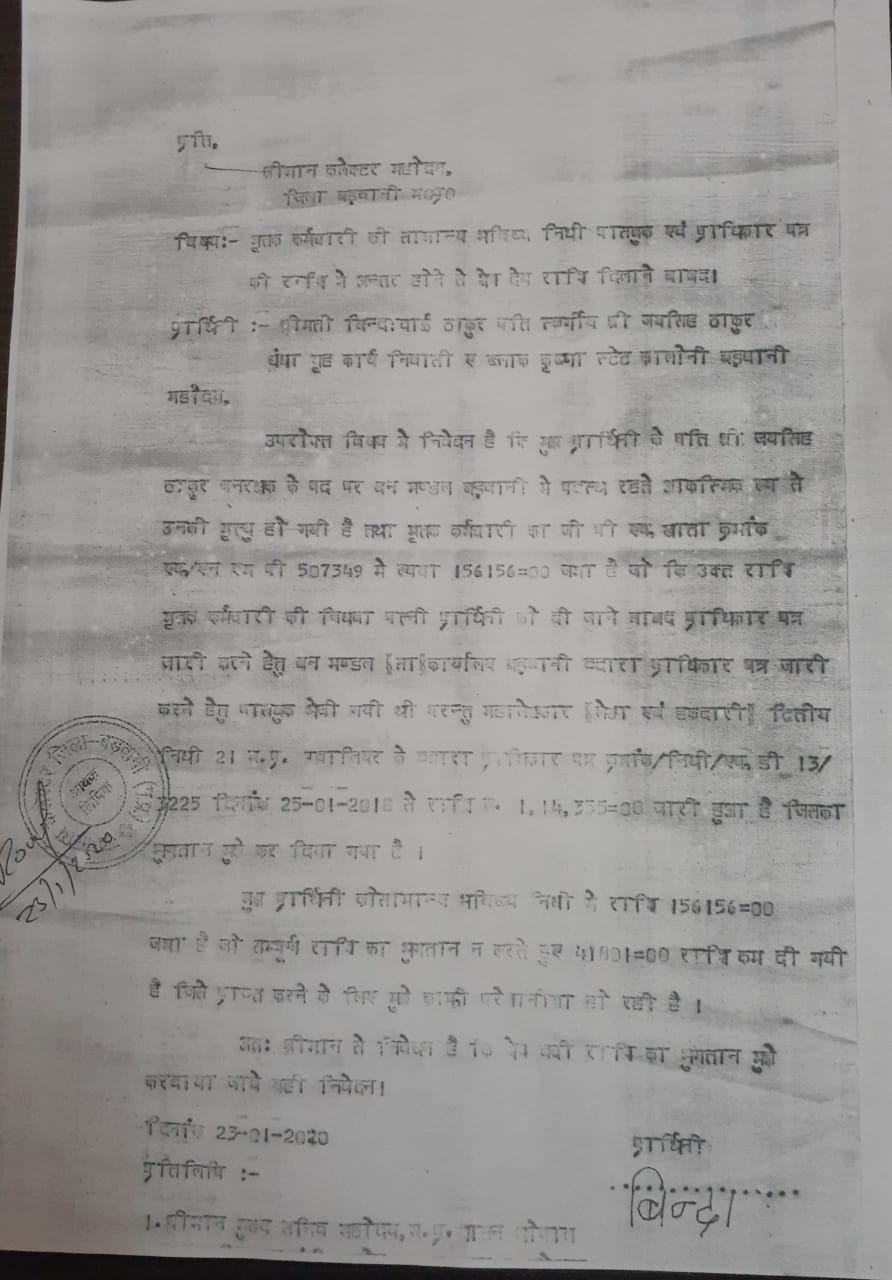 प्रति,
श्रीमान कलेक्टर महोदय,
जिला बड़वानी म०प्र०
विषय:- मृतक कर्मचारी की सामान्य भविष्य निधी पासबुक एवं प्राधिकार पत्र
की राशि मे अन्तर होने से शेष देय राशि दिलाने बाबद।
प्रार्थिनी :- श्रीमती बिन्दाबाई ठाकुर पति स्वर्गीय श्री जयसिंह ठाकुर
धंधा गृह कार्य निवासी ए ब्लाक कृष्णा स्टेट कालोनी बड़वानी
महोदय,
उपरोक्त विषय मे निवेदन है कि मुझ प्रार्थिनी के पति श्री जयसिंह
ठाकुर वनरक्षक के पद पर वन मण्डल बड़वानी मे पदस्थ रहते आकस्मिक रूप से
उनकी मृत्यु हो गयी है तथा मृतक कर्मचारी का जी पी एफ खाता क्रमांक
एफ/एन एम पी 507349 मे रूपया 156156=00 जमा है जो कि उक्त राशि
मृतक कर्मचारी की विधवा पत्नी प्रार्थिनी को दी जाने बाबद प्राधिकार पत्र
जारी करने हेतु वन मण्डल [सा]कार्यालय बड़वानी व्दारा प्राधिकार पत्र जारी
करने हेतु पासबुक भेजी गयी थी परन्तु महालेखाकार [लेखा एवं हकदारी] व्दितीय
निधी 21 म.प्र. ग्वालियर के व्दारा प्राधिकार पत्र क्रमांक/निधी/एफ डी 13/
3225 दिनांक 25-01-2018 से राशि रू. 1,14,355=00 जारी हुआ है जिसका
भुगतान मुझे कर दिया गया है ।
मुझ प्रार्थिनी कोसामान्य भविष्य निधी मे राशि 156156=00
जमा है जो सम्पूर्ण राशि का भुगतान न करते हुए 41801=00 राशि कम दी गयी
है जिसे प्राप्त करने के लिए मुझे काफी परेशानीया हो रही है ।
अत: श्रीमान से निवेदन है कि शेष बची राशि का भुगतान मुझे
करवाया जावे यही निवेदन।
दिनांक 23-01-2020
प्रार्थिनी
बिन्दा
प्रतिलिपि :-
1. श्रीमान मुख्य सचिव महोदय, म.प्र. शासन भोपाल
कलेक्टर जिला-बड़वानी (म.प्र.)
आवक लिपिक
23/1/2020